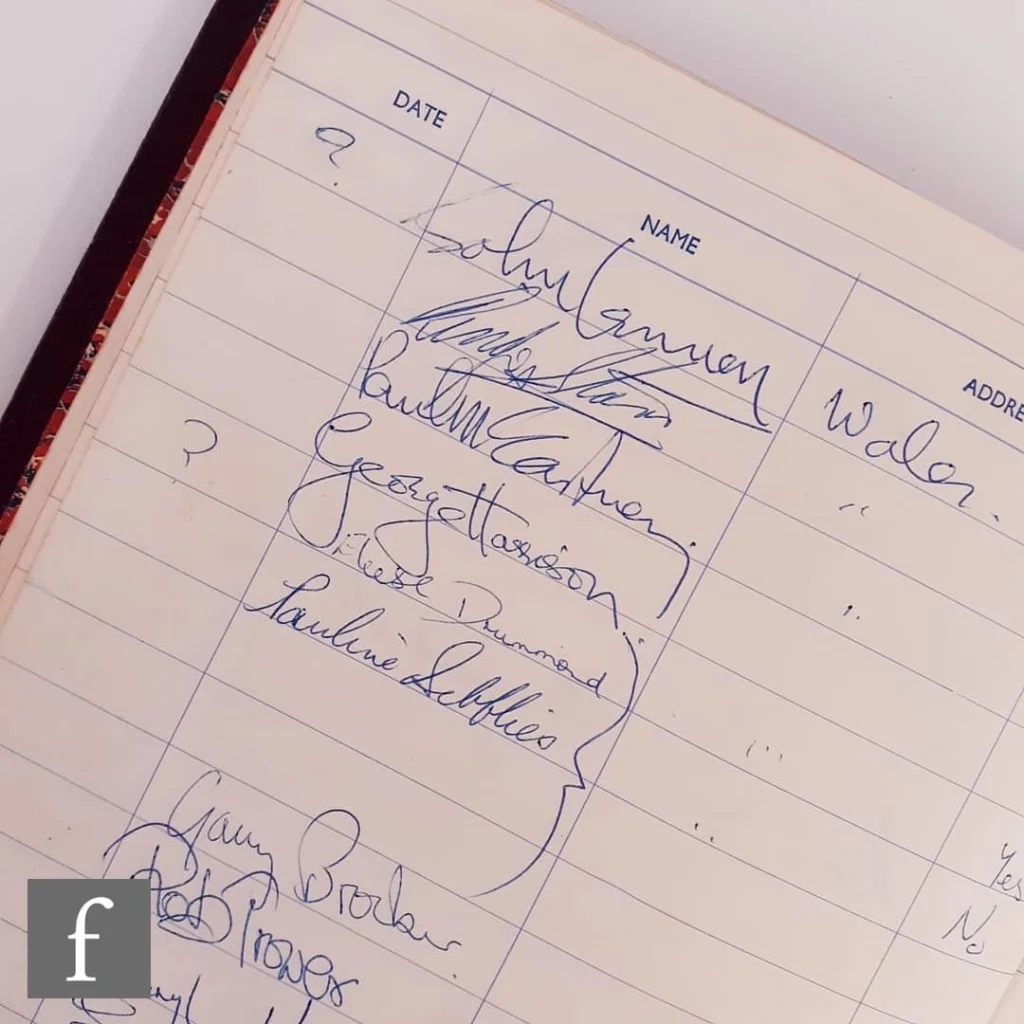 DATE NAME ADDRE
?
John Lennon Wales.
Ringo Starr "
Paul McCartney "
? George Harrison "
Drummond "
Pauline
Yes
Gary Brooker No
Rob Prower
f